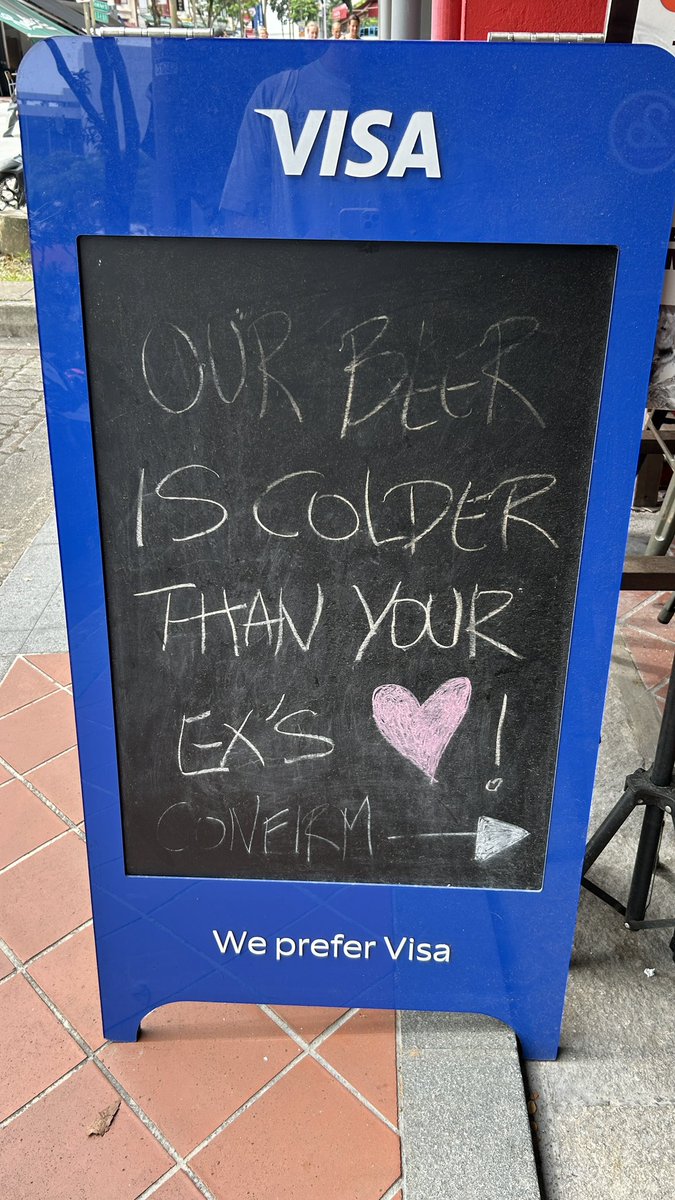 VISA
OUR BEER
IS COLDER
THAN YOUR
EX'S !
CONFIRM
We prefer Visa